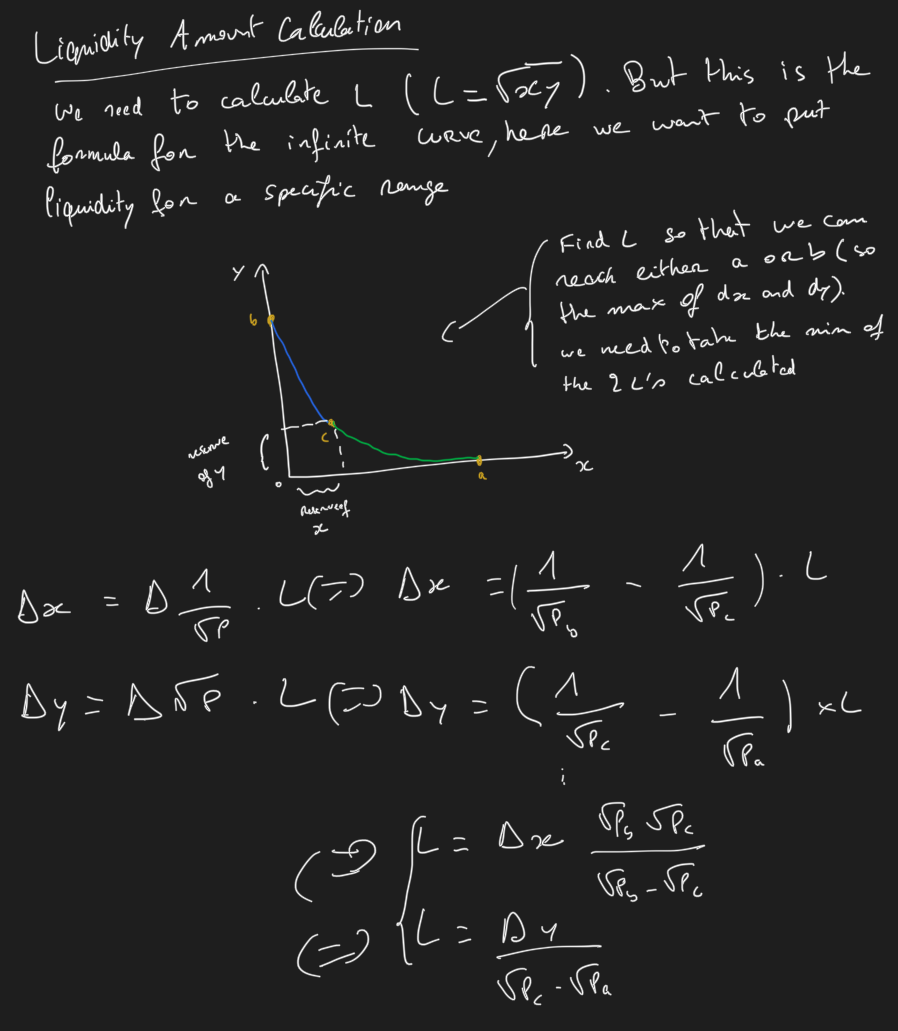 Liquidity Amount Calculation
We need to calculate L (L = √xy). But this is the
formula for the infinite curve, here we want to put
liquidity for a specific range
Find L so that we can
reach either a or b (so
the max of dx and dy).
we need to take the min of
the 2 L's calculated
y
b
c
reserve
of y
o
reserve of
x
a
x
Δx = Δ 1/√P . L <=> Δx = (1/√P_b - 1/√P_c) . L
Δy = Δ√P . L <=> Δy = (1/√P_c - 1/√P_a) × L
<=> { L = Δx √P_b √P_c / √P_b - √P_c
<=> { L = Δy / √P_c - √P_a